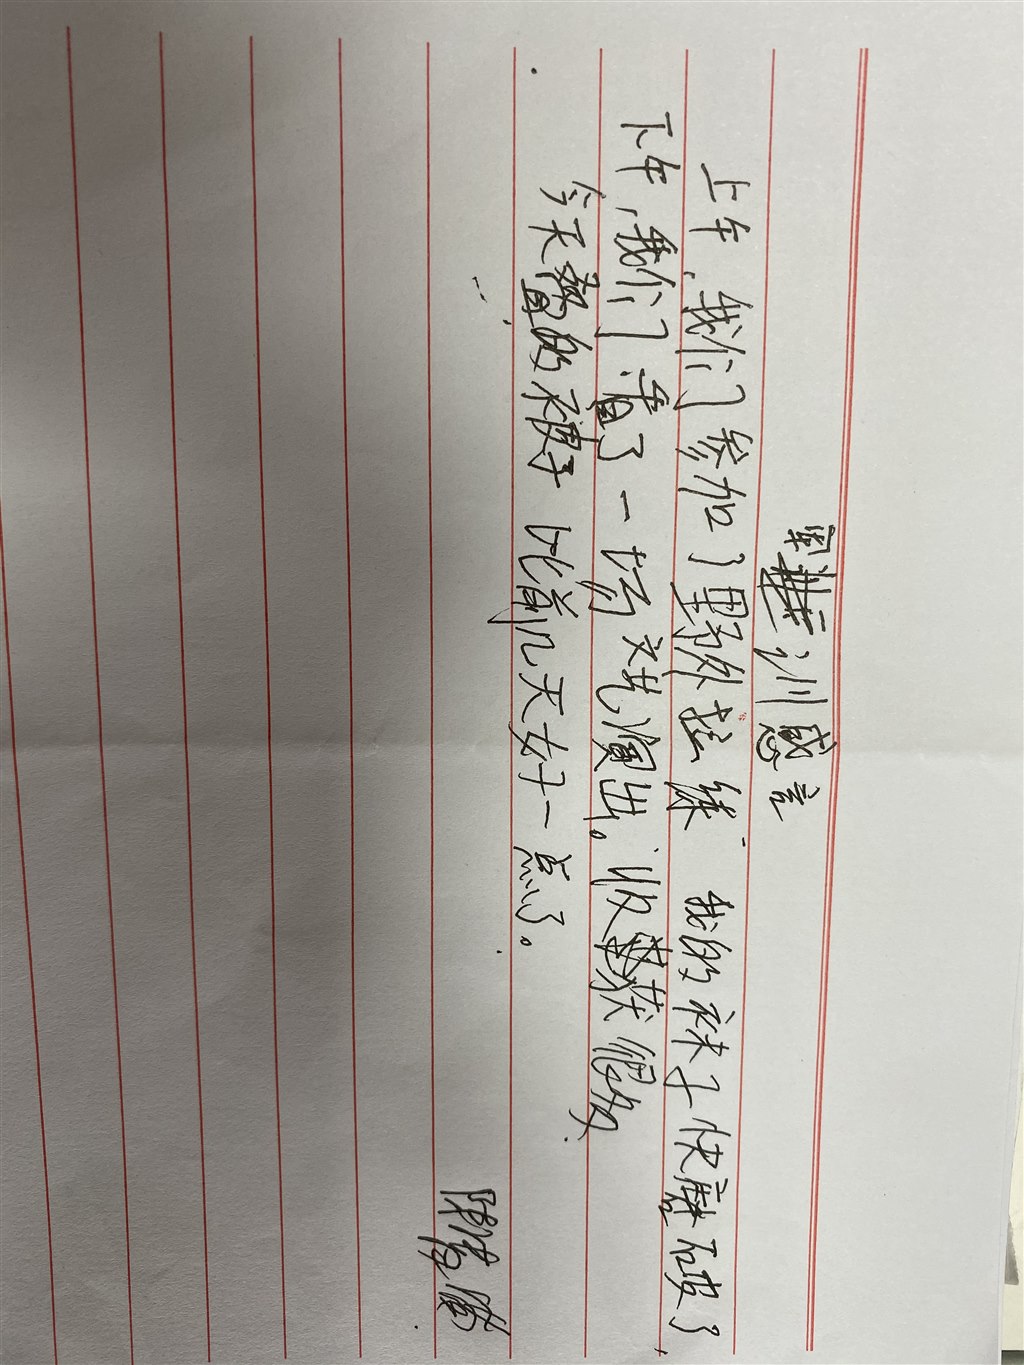 军训感言
上午,我们参加了野外拉练 我的袜子快磨破了
下午,我们看了一场文艺演出。收获很多.
今天叠的被子 比前几天好一点了。